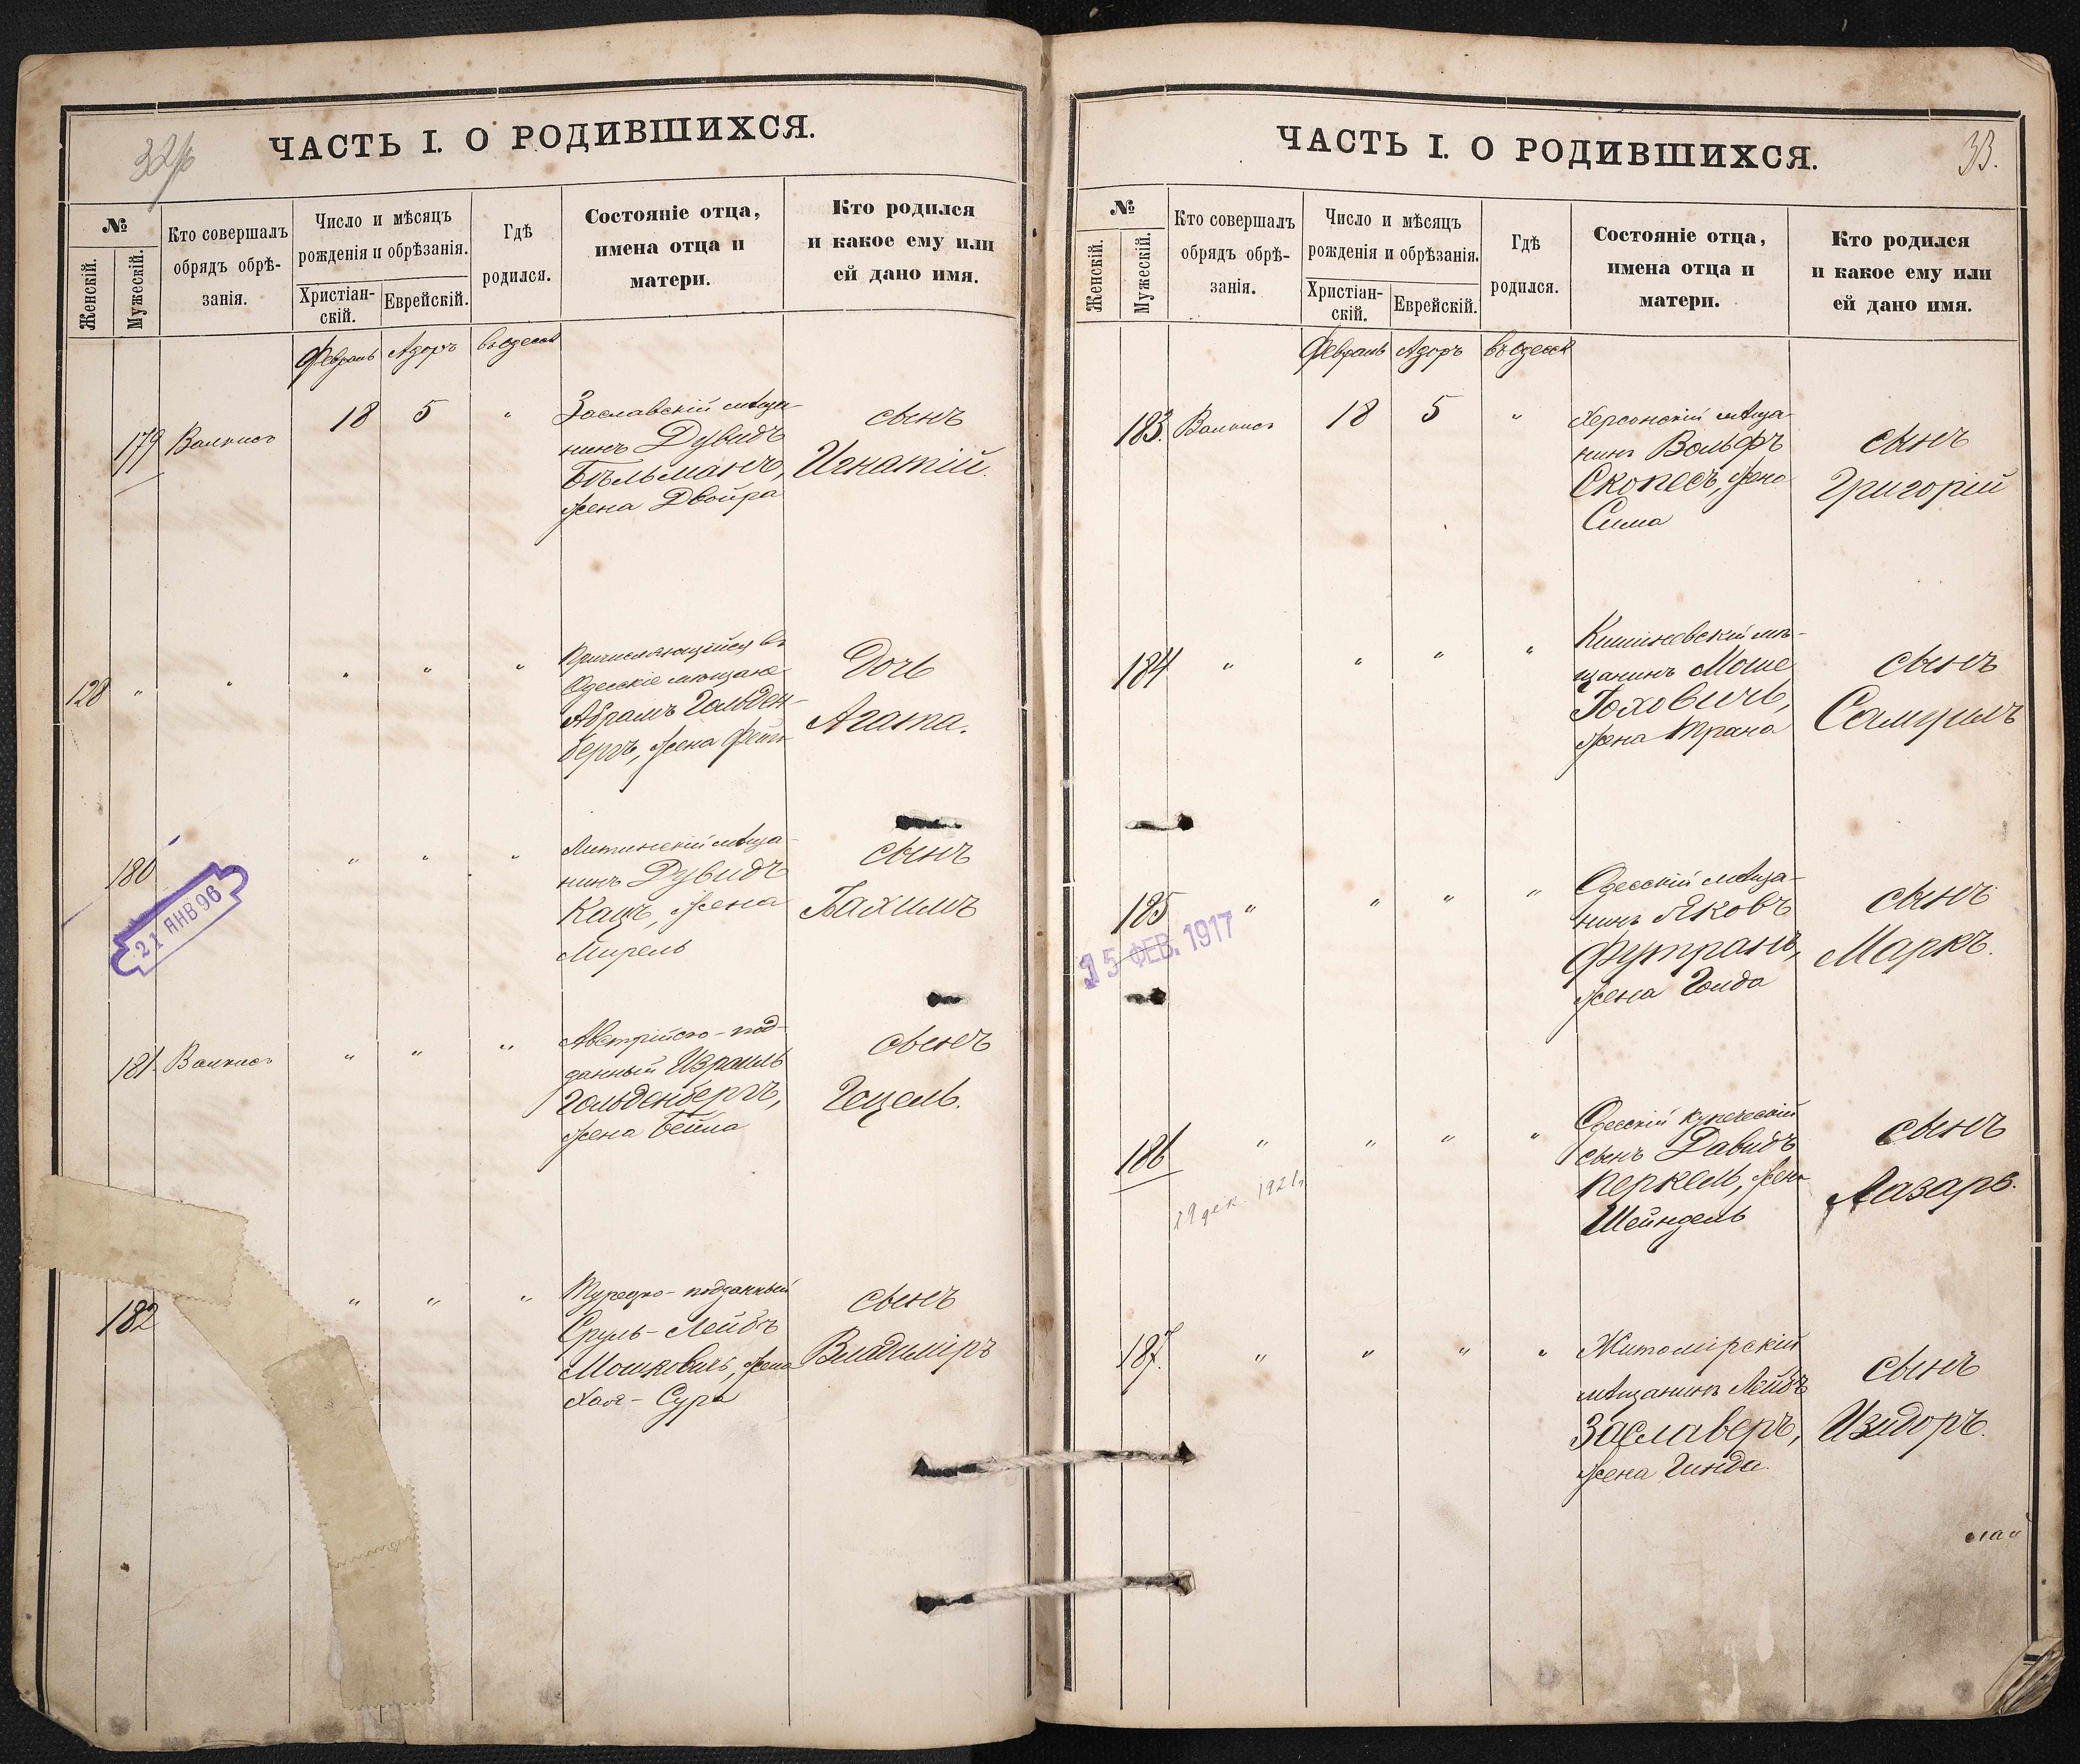 32/б
ЧАСТЬ I. О РОДИВШИХСЯ.
№
Женскій.
Мужескій.
Кто совершалъ
обрядъ обрѣ-
занія.
Число и мѣсяцъ
рожденія и обрѣзанія.
Христіан-
скій.
Еврейскій.
Гдѣ
родился.
Состояніе отца,
имена отца и
матери.
Кто родился
и какое ему или
ей дано имя.
Февраль Адоръ въ Одессѣ
179 Валкисъ 18 5 "
Заславскій мѣща-
нинъ Дувидъ
Бѣльманъ,
жена Двойра
сынъ
Игнатій.
128 " " " " "
Причисляющійся въ
Одесскіе мещане
Абрамъ Гольден-
бергъ, жена Фейга
Дочь
Агата.
180 " " "
Литинскій мѣща-
нинъ Дувидъ
Кацъ, жена
Мирель
сынъ
Іоахимъ
21 ЯНВ 96
181. Валкисъ " " "
Австрійско-под-
данный Израиль
Гольденбергъ,
жена Бейла
сынъ
Гецель.
182 " " "
Турецко-подданный
Сруль-Лейбъ
Мошковичъ, жена
Хая-Сура
сынъ
Владиміръ
33.
ЧАСТЬ I. О РОДИВШИХСЯ.
№
Женскій.
Мужескій.
Кто совершалъ
обрядъ обрѣ-
занія.
Число и мѣсяцъ
рожденія и обрѣзанія.
Христіан-
скій.
Еврейскій.
Гдѣ
родился.
Состояніе отца,
имена отца и
матери.
Кто родился
и какое ему или
ей дано имя.
Февраль Адоръ въ Одессѣ
183. Валкисъ 18 5 "
Херсонскій мѣща-
нинъ Вольфъ
Скопецъ, жена
Сима
сынъ
Григорій
184 " " " "
Кишиневскій мѣ-
щанинъ Моше
Іоховичъ,
жена Трана
сынъ
Самуилъ
185 " " " "
Одесскій мѣща-
нинъ Яковъ
Футранъ,
жена Голда
сынъ
Маркъ.
15 ФЕВ. 1917
186 " " " "
Одесскій купеческій
сынъ Давидъ
Перкель, жена
Шейндель
сынъ
Лазарь.
19 дек. 1921.
187. " " " "
Житомірскій
мѣщанинъ Лейбъ
Заславеръ,
жена Гинда.
сынъ
Изидоръ.